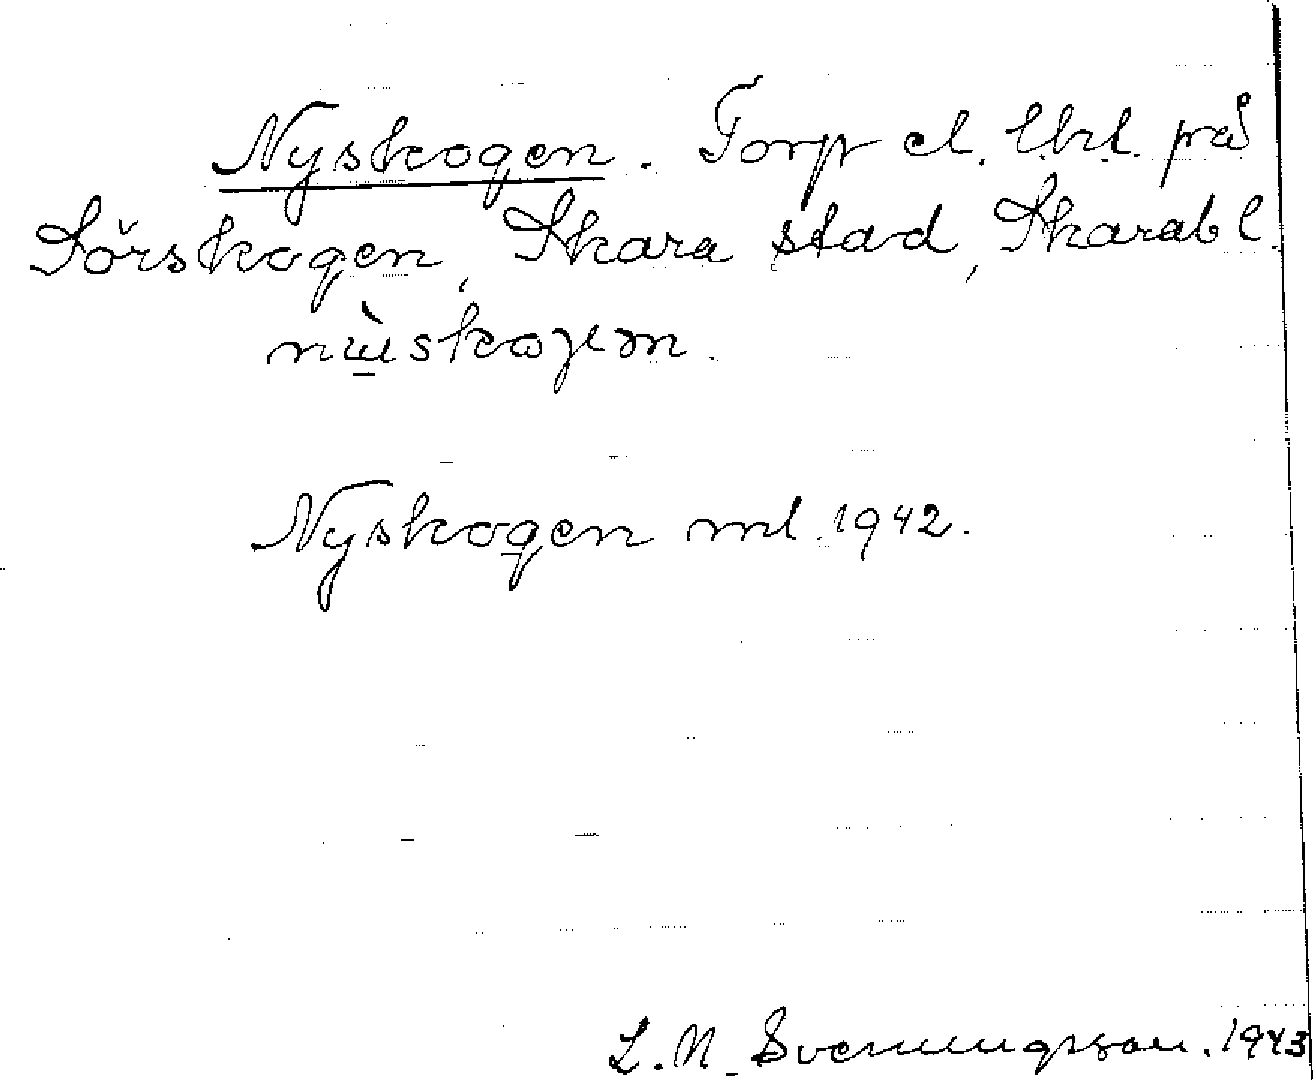 Nyskogen. Torp el. lht. på
Sörskogen, Skara stad, Skarab l.
Nyskogen ml. 1942.
L. N. Svenungsson. 1943